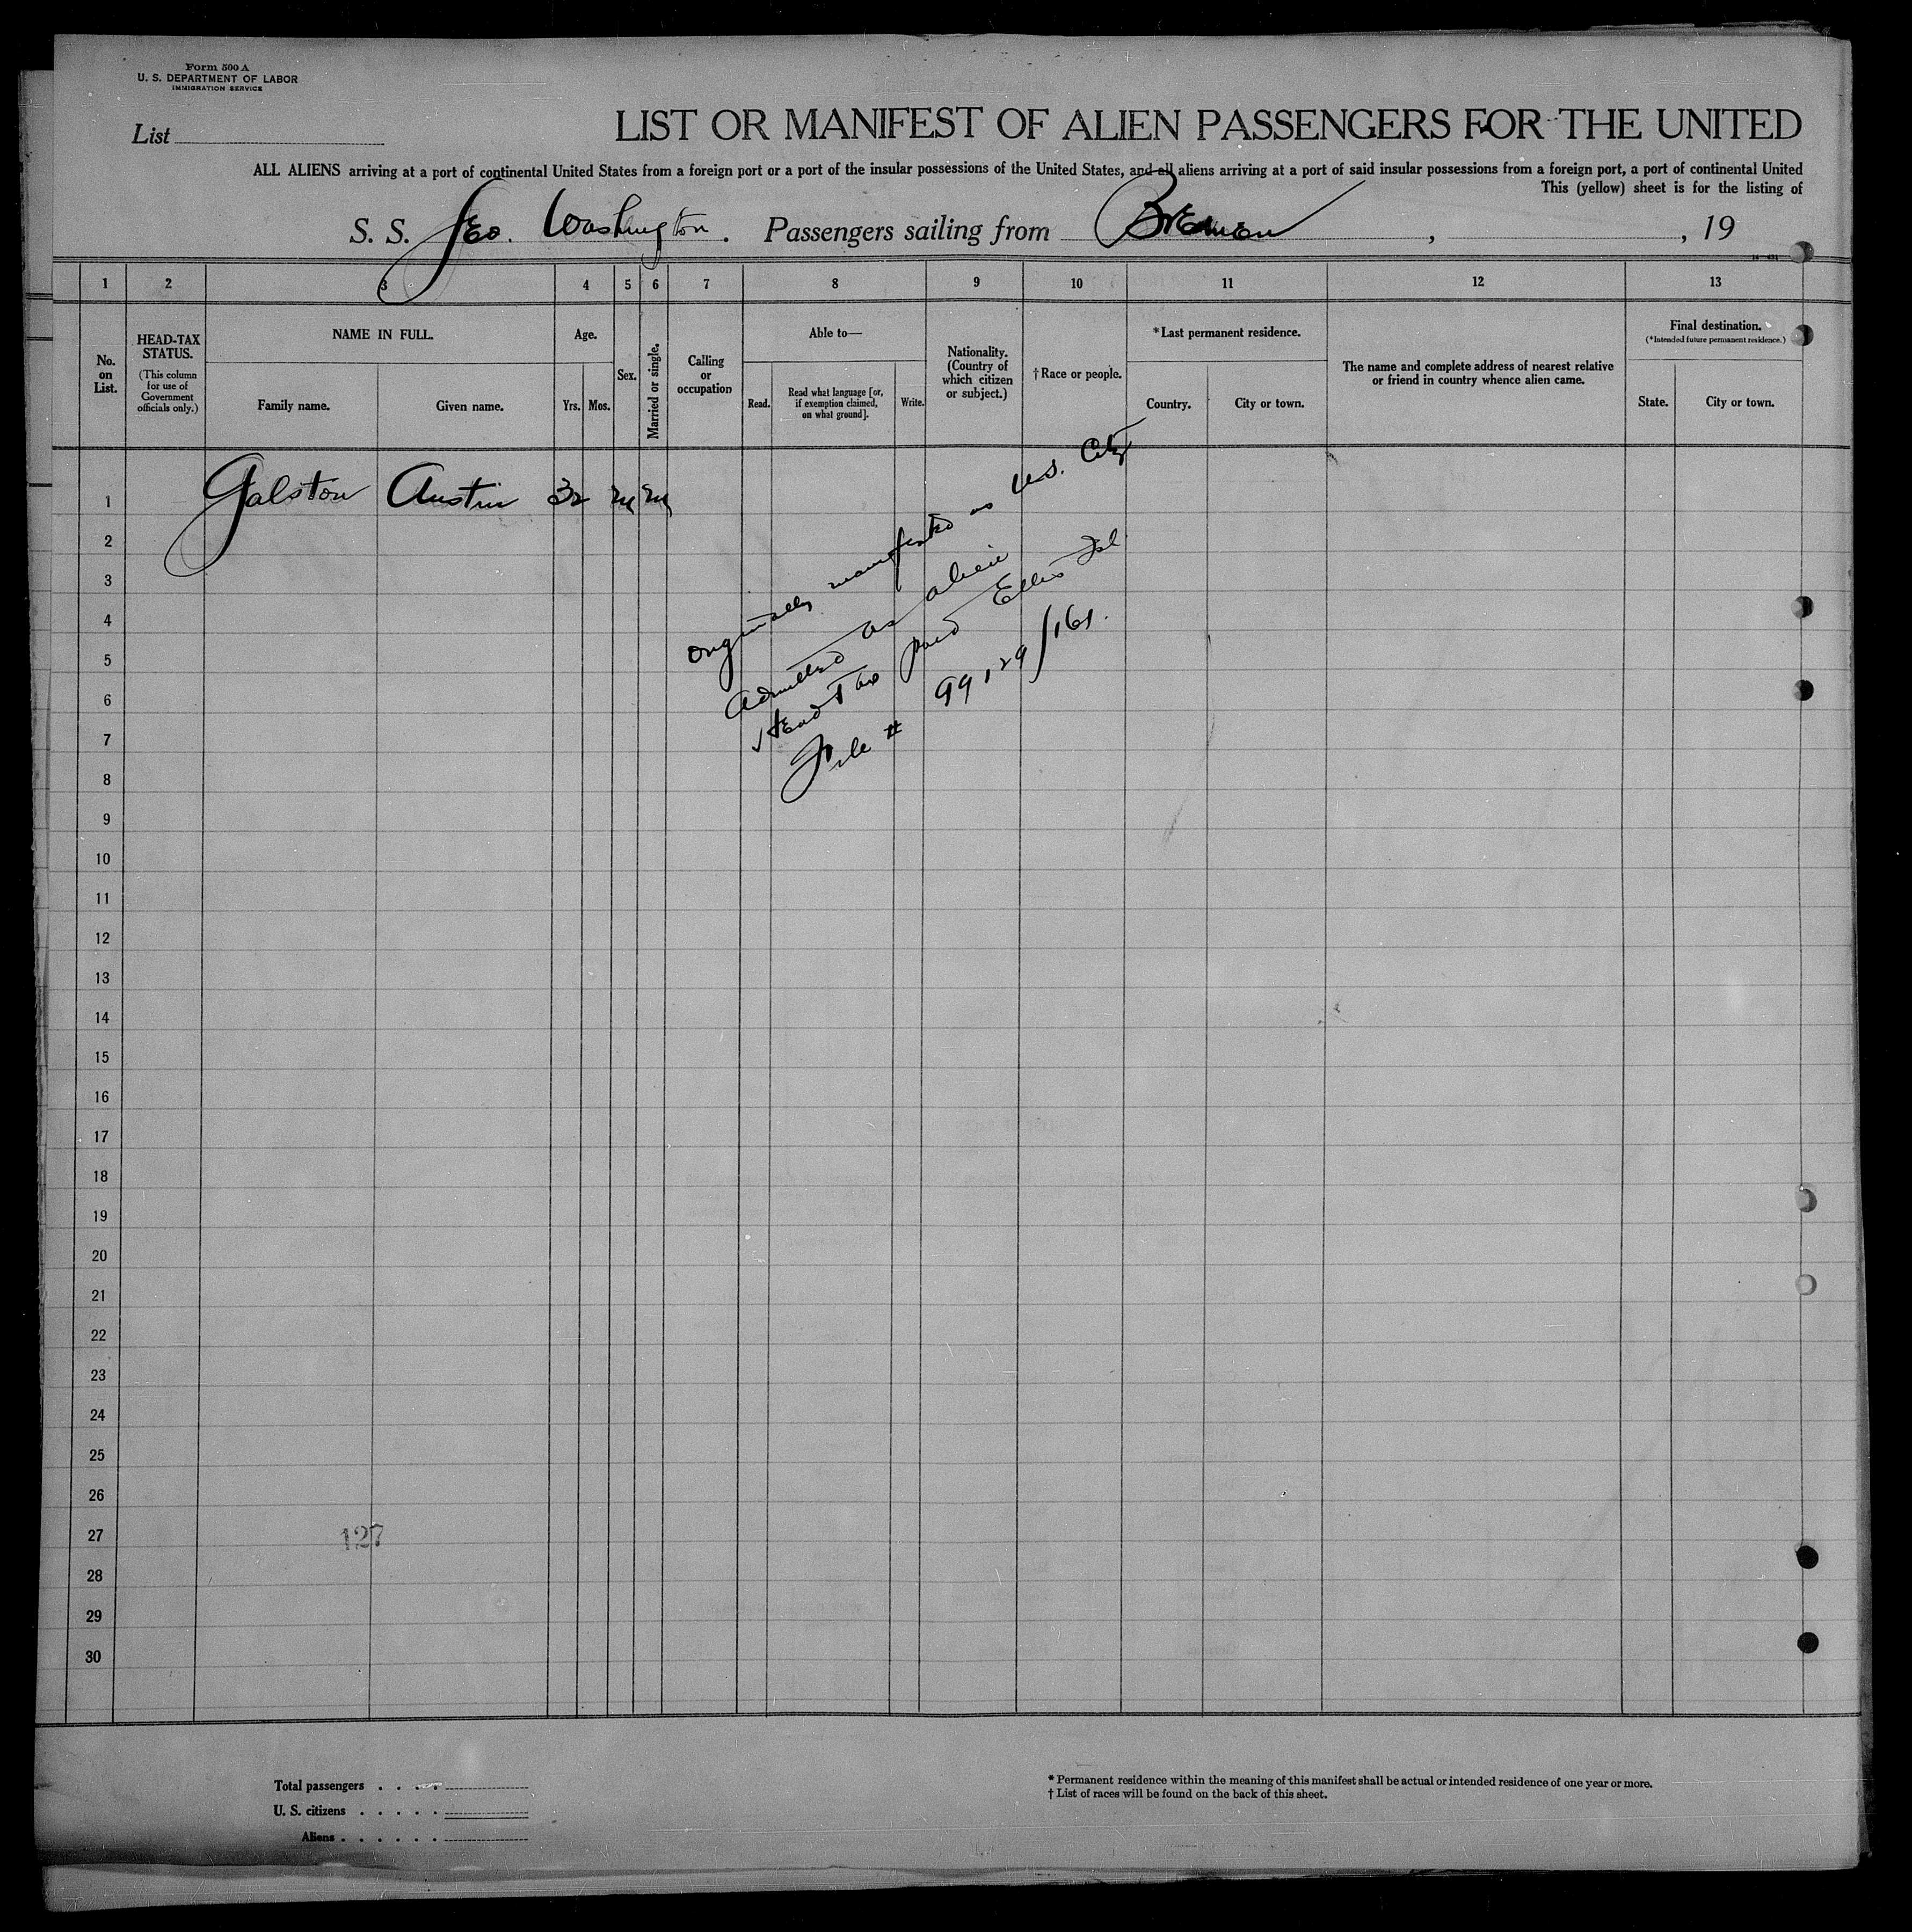 Form 500 A
U. S. DEPARTMENT OF LABOR
IMMIGRATION SERVICE
List
LIST OR MANIFEST OF ALIEN PASSENGERS FOR THE UNITED
ALL ALIENS arriving at a port of continental United States from a foreign port or a port of the insular possessions of the United States, and all aliens arriving at a port of said insular possessions from a foreign port, a port of continental United
This (yellow) sheet is for the listing of
S. S. Geo. Washington. Passengers sailing from Bremen, , 19
1 2 3 4 5 6 7 8 9 10 11 12 13
No. on List.
HEAD-TAX STATUS.
(This column for use of Government officials only.)
NAME IN FULL.
Family name.
Given name.
Age.
Yrs. Mos.
Sex.
Married or single.
Calling or occupation
Able to—
Read.
Read what language [or, if exemption claimed, on what ground].
Write.
Nationality. (Country of which citizen or subject.)
†Race or people.
*Last permanent residence.
Country.
City or town.
The name and complete address of nearest relative or friend in country whence alien came.
Final destination.
(*Intended future permanent residence.)
State.
City or town.
1 Galston Austin 32 M M
Originally manifested as U.S. Citz
Admitted as alien
Head Tax paid Ellis Isl
File # 99129/161.
2
3
4
5
6
7
8
9
10
11
12
13
14
15
16
17
18
19
20
21
22
23
24
25
26
27
127
28
29
30
Total passengers
U. S. citizens
Aliens
* Permanent residence within the meaning of this manifest shall be actual or intended residence of one year or more.
† List of races will be found on the back of this sheet.